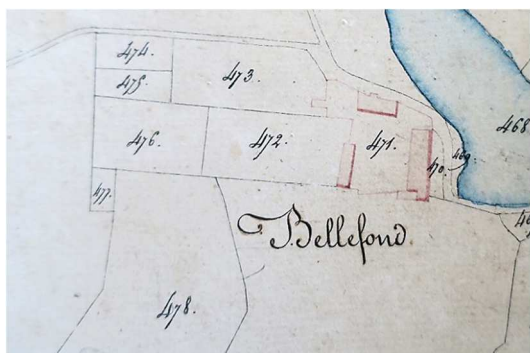 474.
475.
473.
468
476.
472.
471.
470.
469.
477.
Bellefond
478.